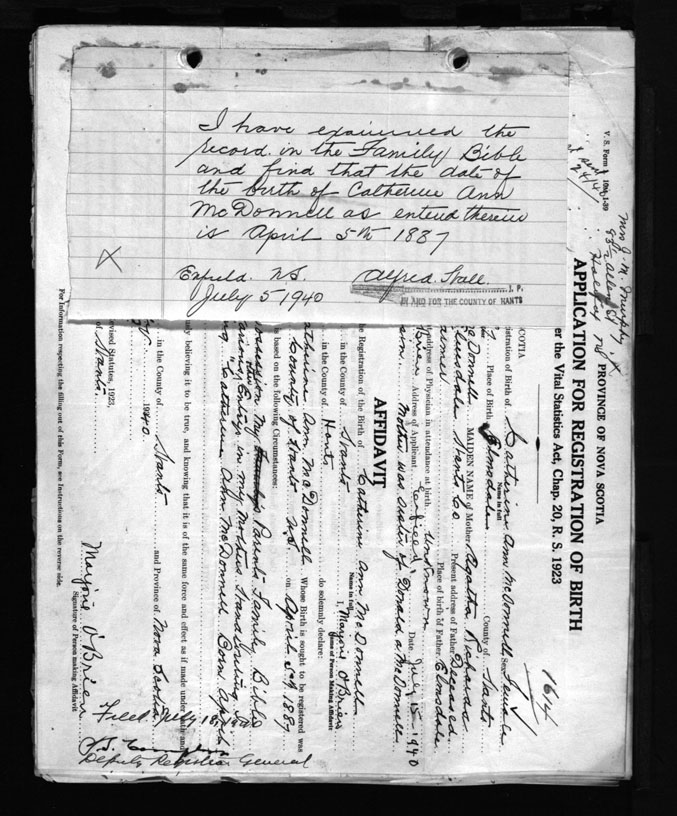 I have examined the
record in the Family Bible
and find that the date of
the birth of Catherine Ann
McDonnell as entered therein
is April 5th 1887
Enfield. N.S.
July 5 1940
Alfred
J. P.
IN AND FOR THE COUNTY OF HANTS
X
V. S. Form
Mrs J. M. Murphy
Halifax NS
PROVINCE OF NOVA SCOTIA
APPLICATION FOR REGISTRATION OF BIRTH
er the Vital Statistics Act, Chap. 20, R. S. 1923
164
SCOTIA
istration of Birth of Catherine Ann McDonnell Sex Female
Name in full
Place of Birth Elmsdale County of Hants
Donnell MAIDEN NAME of Mother Richards
Elmsdale Hants Co Present address of Father Deceased
Place of birth of Father Elmsdale
Address of Physician in attendance at birth. Unknown
Address of Applicant Enfield Date July 15 1940
Mother was sister of Donald A McDonnell
AFFIDAVIT
he Registration of the Birth of Catherine Ann McDonnell
Name in full
in the County of Hants I, Marjorie O'Brien
Name of Person Making Affidavit
in the County of Hants do solemnly declare:
atherine Ann McDonnell Whose Birth is sought to be registered was
County of Hants NS. on April 5th 1887
is based on the following Circumstances:
ossession my Parents Family Bible
Entries in my Mothers Hand Writing
Catherine Ann McDonnell Born April
usly believing it to be true, and knowing that it is of the same force and effect as if made under oath and
evised Statutes, 1923.
in the County of Hants and Province of Nova Scotia
1940
of Hants.
Marjorie O'Brien
Signature of Person making Affidavit
Filed July 18, 1940
Deputy Registrar General
For Information respecting the filling out of this Form, see Instructions on the reverse side.